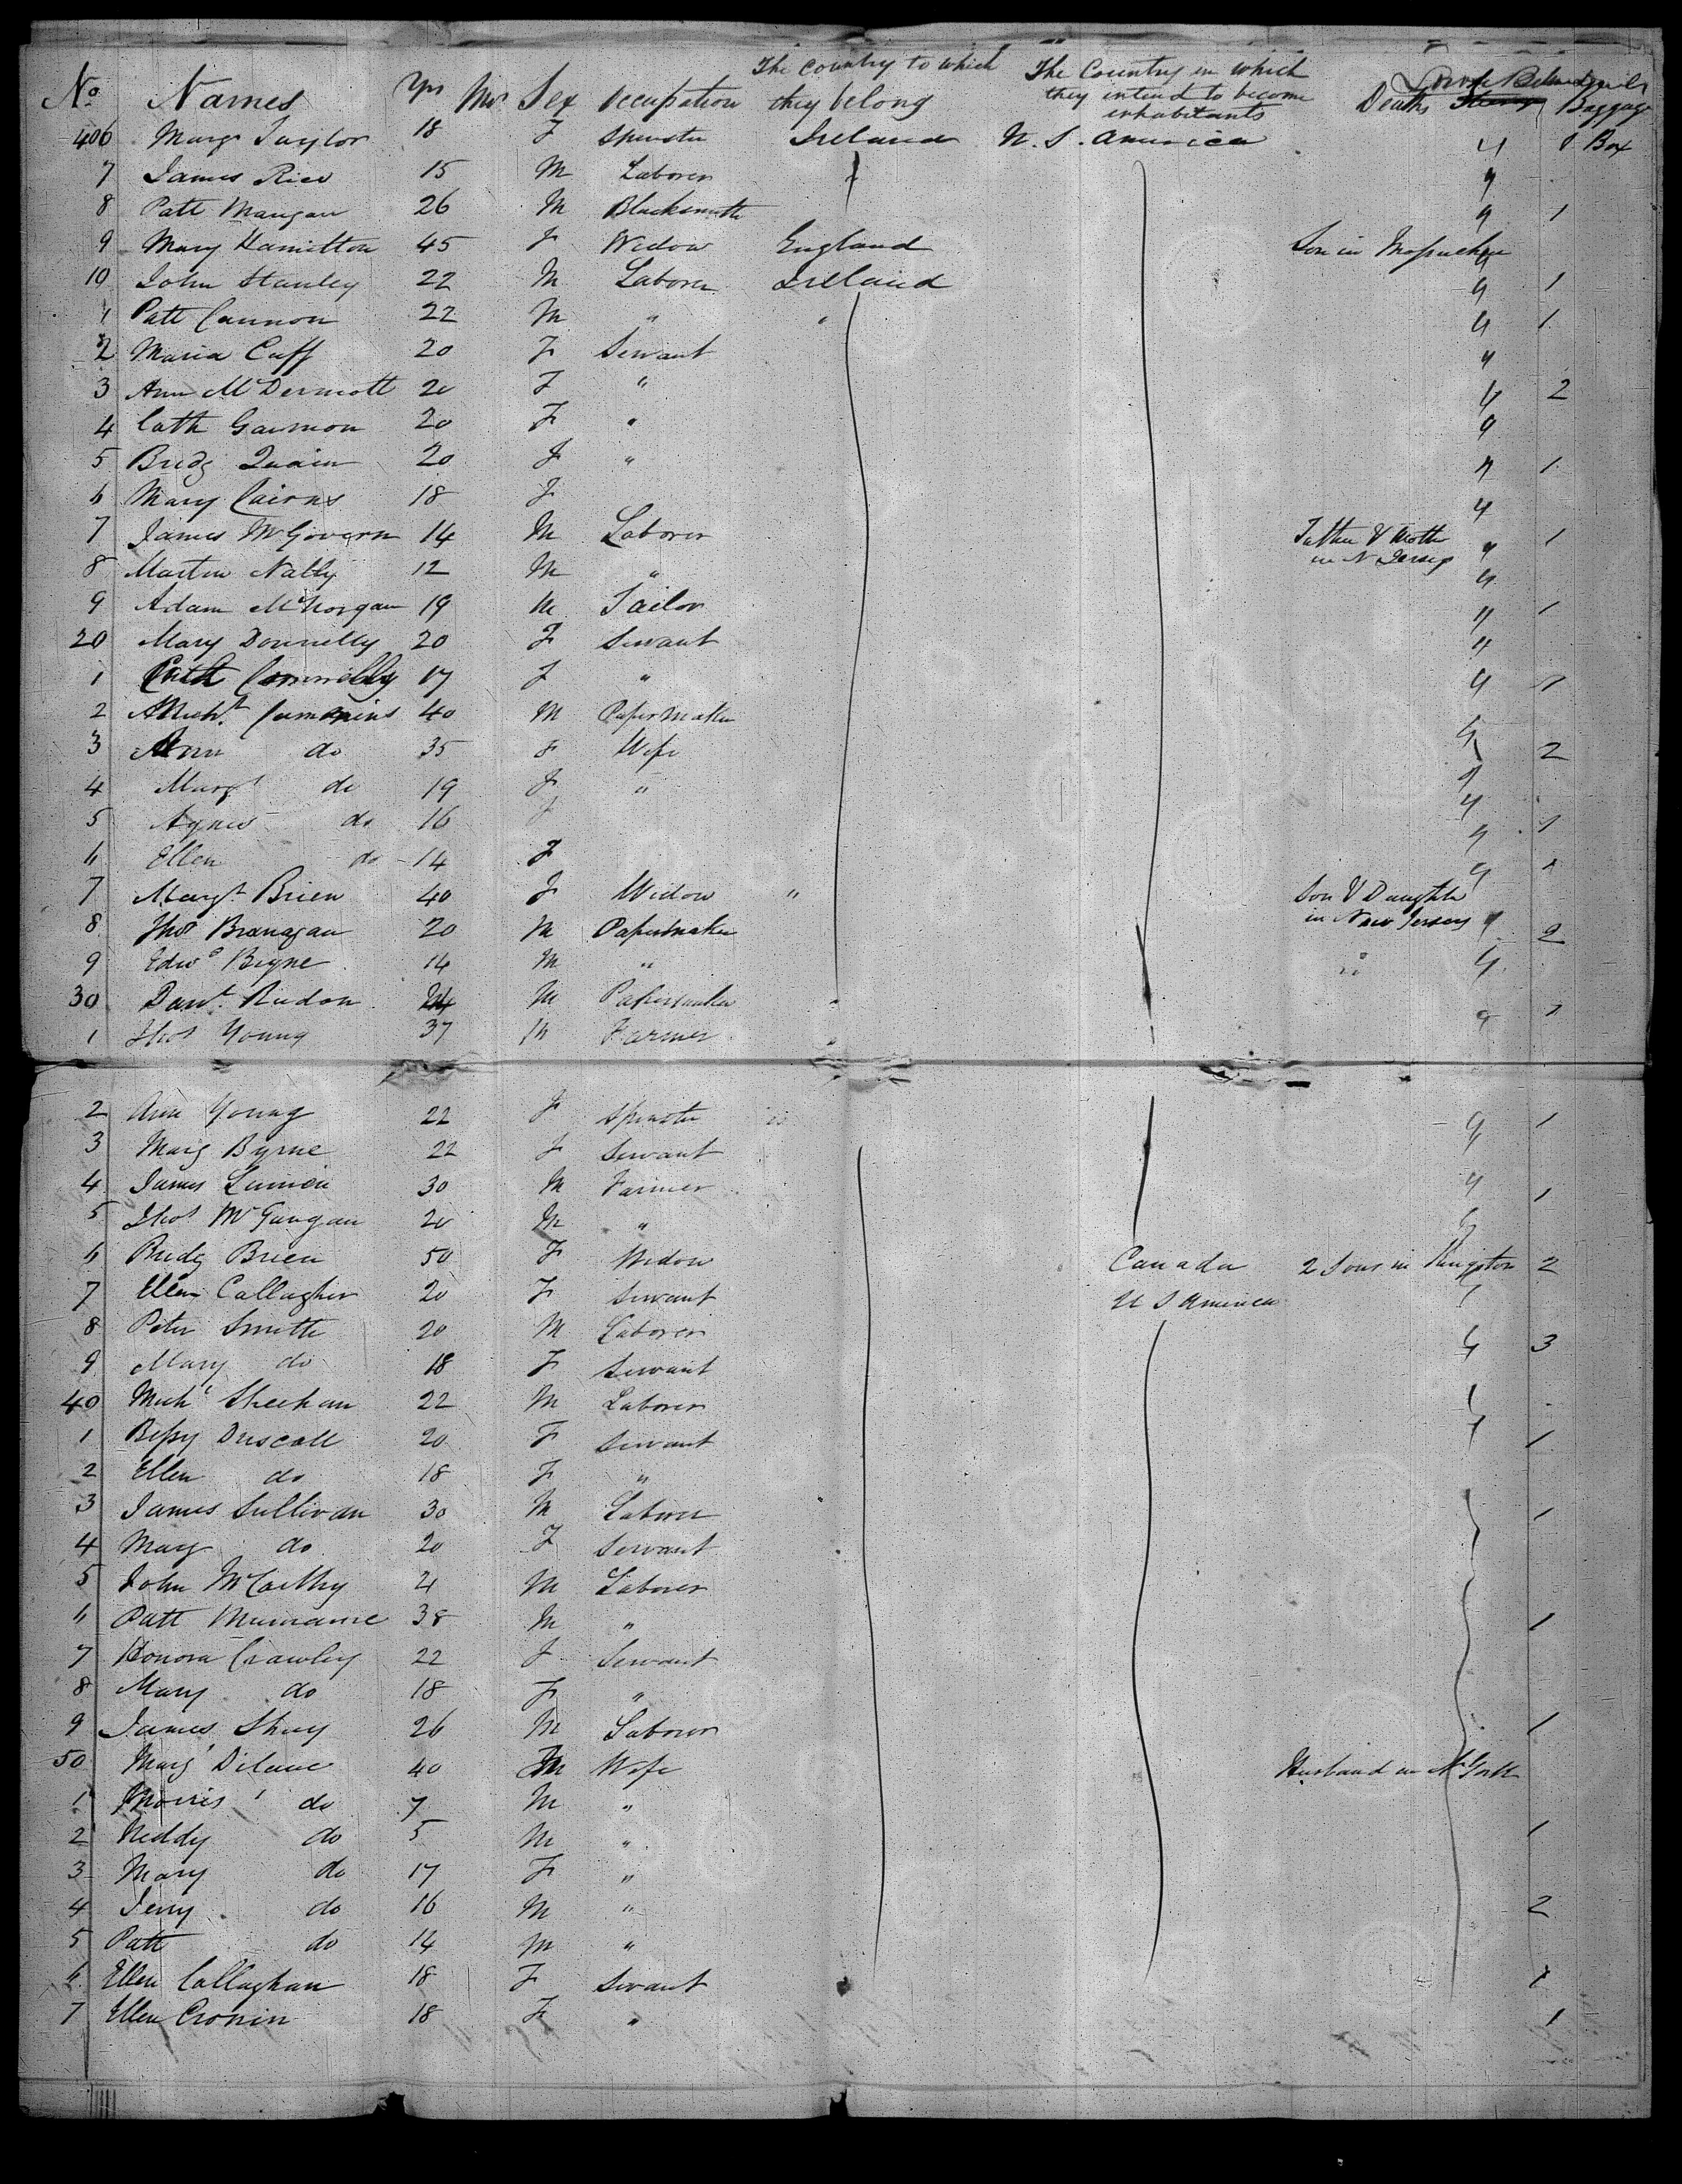 No Names Yrs Mos Sex Occupation The Country to which they belong The Country in which they intend to become inhabitants Deaths Baggage
406 Marg Taylor 18 F Spinster Ireland U. S. America 4 1 Box
7 James Rice 15 M Laborer 4
8 Patt Mangan 26 M Blacksmith 4 1
9 Mary Hamilton 45 F Widow England Son in 4
10 John Stanley 22 M Laborer Ireland 4 1
1 Patt Cannon 22 M " " 4 1
2 Maria Cuff 20 F Servant 4
3 Ann McDermott 20 F " 4 2
4 Cath Gannon 20 F " 4
5 Bridg Quain 20 F " 4 1
6 Mary Cairns 18 F 4
7 James McGovern 14 M Laborer Father & Mother in N Jersey 4 1
8 Martin Nally 12 M " 4
9 Adam 19 M Tailor 4 1
20 Mary Donnelly 20 F Servant 4
1 Cath Connelly 17 F " 4 1
2 Cummins 40 M Paper Maker 4
3 Ann do 35 F Wife 4 2
4 Margt do 19 F " 4
5 Agnes do 16 F 4
6 Ellen do 14 F 4 1
7 Margt Brien 40 F Widow " Son & Daughter in New Jersey 4 1
8 Thos Branagan 20 M Papermaker 4 2
9 Edwd Byrne 14 M " " 4
30 Danl M Papermaker 4 1
1 Thos Young 37 M Farmer
2 Ann Young 22 F Spinster " 4 1
3 Marg Byrne 22 F Servant
4 James 30 M Farmer 4 1
5 Thos 20 M " 4
6 Bridg Brien 50 F Widow Canada 2 Sons in Kingston 2
7 Ellen Callagher 20 F Servant U S America
8 Peter Smith 20 M Laborer 4 3
9 Mary do 18 F Servant
40 Michl Sheehan 22 M Laborer
1 Bessy Driscoll 20 F Servant 1
2 Ellen do 18 F "
3 James Sullivan 30 M Laborer 1
4 Mary do 20 F Servant
5 John McCarthy 21 M Laborer
6 Patt Murnane 38 M " 1
7 Honora Crawley 22 F Servant
8 Mary do 18 F "
9 James Shuy 26 M Laborer 1
50 Margt Dilane 40 Wife Husband in N York
1 Morris do 7 M "
2 Neddy do 5 M " 1
3 Mary do 17 F "
4 Jerry do 16 M " 2
5 Patt do 14 M "
6 Ellen Callaghan 18 F Servant 1
7 Ellen Cronin 18 F " 1